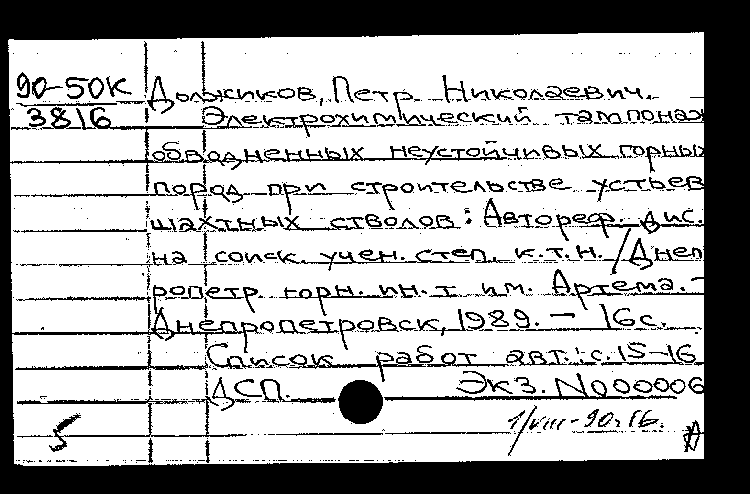 90-50К Должиков, Петр Николаевич.
3816 Электрохимический тампонаж
обводненных неустойчивых горных
пород при строительстве устьев
шахтных стволов: Автореф. дис.
на соиск. учен. степ. к.т.н. /Днеп
ропетр. горн. ин-т им. Артема. -
Днепропетровск, 1989. - 16с.
Список работ авт.: с.15-16
ДСП. Экз. N000006
1/VIII-90г.
5